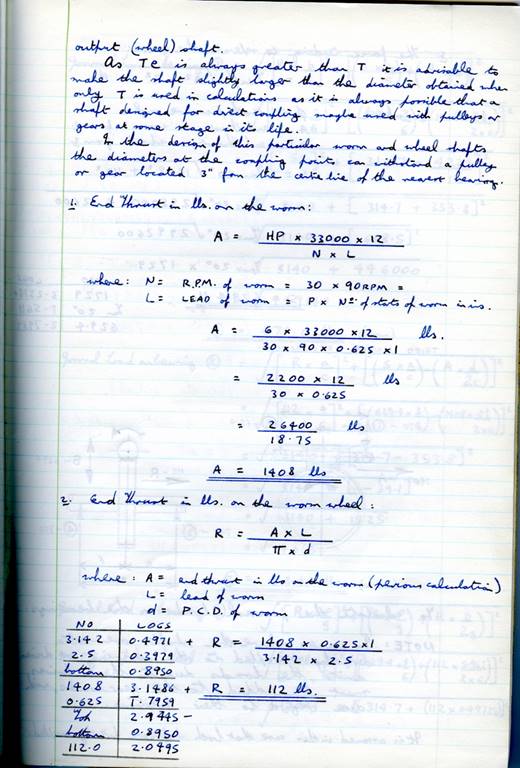 output (wheel) shaft.
As Te is always greater than T it is advisable to
make the shaft slightly larger than the diameter obtained when
only T is used in calculations as it is always possible that a
shaft designed for direct coupling maybe used with pulleys or
gears at some stage in its life.
In the design of this particular worm and wheel shafts
the diameters at the coupling points can withstand a pulley
or gear located 3" from the centre line of the nearest bearing.
1. End Thrust in lbs. on the worm:
A = HP x 33000 x 12
N x L
where: N = R.P.M. of worm = 30 x 90 RPM =
L = LEAD of worm = P x No. of starts of worm in ins.
A = 6 x 33000 x 12 lbs.
30 x 90 x 0.625 x 1
= 2200 x 12 lbs
30 x 0.625
= 26400 lbs
18.75
A = 1408 lbs
2. End Thrust in lbs. on the worm wheel:
R = A x L
π x d
where: A = end thrust in lbs on the worm (pervious calculation)
L = lead of worm
d = P.C.D. of worm
NO LOGS
3.142 0.4971 + R = 1408 x 0.625 x 1
2.5 0.3979 3.142 x 2.5
bottom 0.8950
1408 3.1486 + R = 112 lbs.
0.625 1̅.7959
Top 2.9445 -
bottom 0.8950
112.0 2.0495